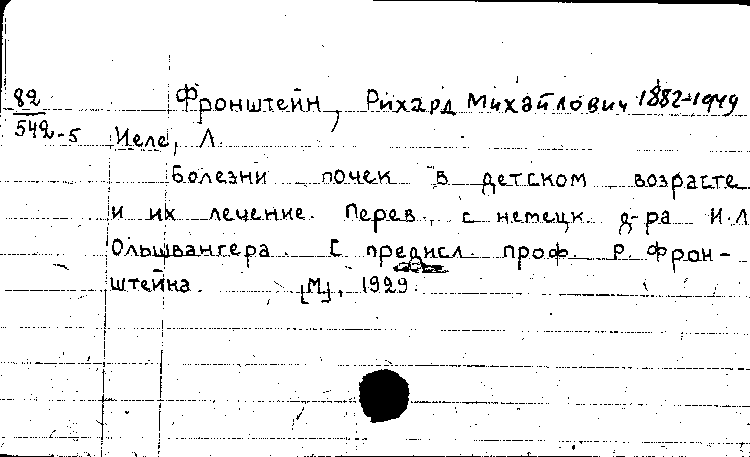 82 Фронштейн, Рихард Михайлович 1882-1949
542-5 Иеле, Л.
Болезни почек в детском возрасте
и их лечение. Перев. с немецк. д-ра И.Л.
Ольшвангера. С предисл. проф. Р. Фрон-
штейна. [М], 1929.